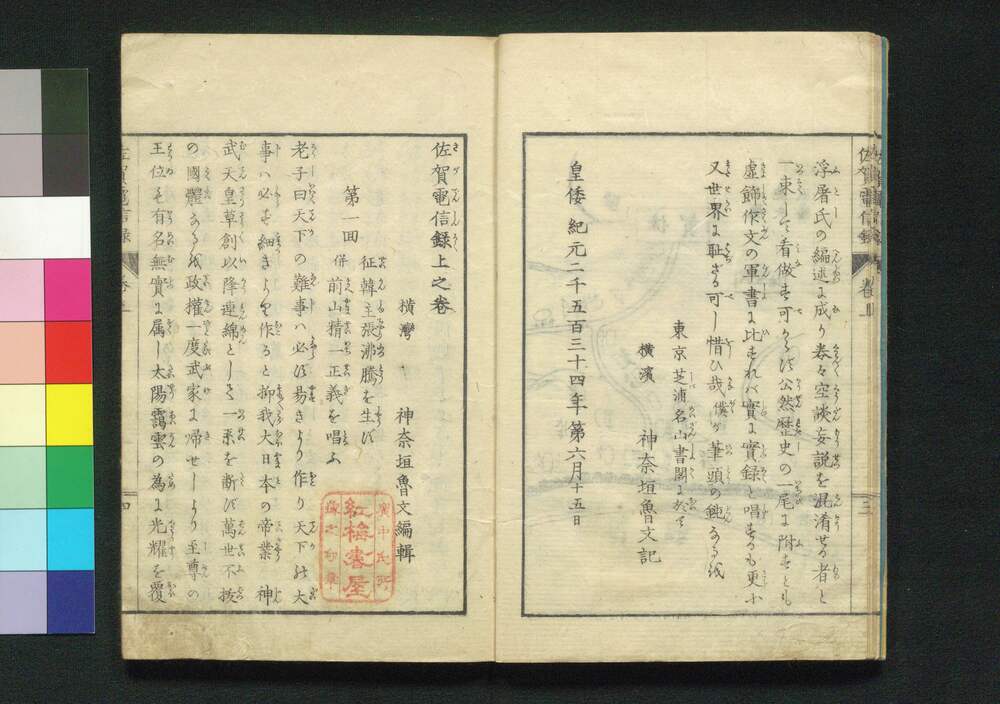 浮屠氏の編述に成り巻々空談妄説を混淆せる者と
一束して看做す可からず公然歴史の一尾に附すとも
虚飾作文の軍書に比すれバ實に實録と唱するも更に
又世界に耻ざる可し惜ひ哉僕が筆頭の鈍なるを
東京芝浦名山書閣に於て
横濱 神奈垣魯文記
皇倭紀元二千五百三十四年第六月十五日
佐賀電信録 巻上 三
佐賀電信録上之卷
横灣 神奈垣魯文編輯
第一回 征韓主張沸騰を生ず
併前山精一正義を唱ふ
老子曰天下の難事ハ必ず易きより作り天下の大
事ハ必ず細きより作ると抑我大日本の帝業 神
武天皇草創以降連綿として一系を断ず萬世不拔
の國體なるを政權一度武家に帰せしより至尊の
王位も有名無實に属し太陽靄雲の為に光耀を覆
佐賀電信録 四
紅梅書屋